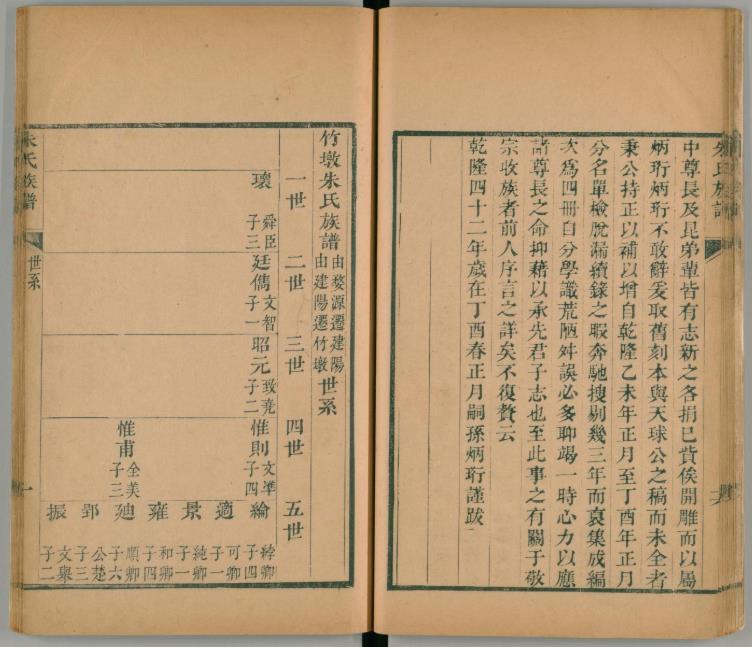 中尊長及昆弟輩皆有志新之各捐已貲俟開雕而以屬
炳珩炳珩不敢辭爰取舊刻本與天球公之稿而未全者
秉公持正以補以增自乾隆乙未年正月至丁酉年正月
分名單檢脫漏續錄之暇奔馳搜剔幾三年而裒集成編
次為四冊自分學識荒陋舛誤必多聊竭一時心力以應
諸尊長之命抑藉以承先君子志也至此事之有關于敬
宗收族者前人序言之詳矣不復贅云
乾隆四十二年歲在丁酉春正月嗣孫炳珩謹跋
竹墩朱氏族譜 由婺源遷建陽 由建陽遷竹墩 世系
一世 二世 三世 四世 五世
瓌 舜臣 子三
廷儁 文智 子一
昭元 致堯 子二
惟則 文準 子四
惟甫 全美 子三
綸 綍卿 子四
適 可卿 子一
景 純卿 子一
雍 和卿 子四
廸 順卿 子六
郢 公楚 子三
振 文舉 子二
朱氏族譜
世系
一